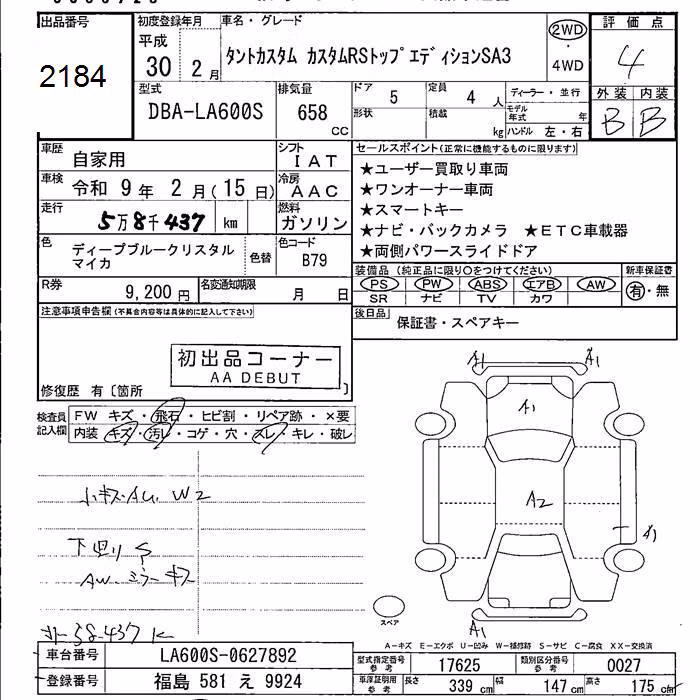 出品番号
2184
初度登録年月
平成
30 2月
車名・グレード
タントカスタム カスタムRSトップエディションSA3
2WD
・
4WD
評価点
4
外装 内装
B B
型式
DBA-LA600S
排気量
658
CC
ドア
5
定員
4 人
形状
積載
kg
ディーラー・並行
モデル年式 年
ハンドル 左・右
車歴
自家用
シフト
IAT
車検
令和 9年 2月(15日)
冷房
AAC
走行
5万8千437 km
燃料
ガソリン
色
ディープブルークリスタル
マイカ
色替
色コード
B79
R券
9,200円
名変通知期限
月 日
セールスポイント(正常に機能するものに限ります)
★ユーザー買取り車両
★ワンオーナー車両
★スマートキー
★ナビ・バックカメラ ★ETC車載器
★両側パワースライドドア
装備品(純正品に限り○をつけてください)
PS PW ABS エアB AW
SR ナビ TV カワ
新車保証書
有・無
後日品
保証書・スペアキー
注意事項申告欄(不具合内容等は具体的に記入して下さい)
初出品コーナー
AA DEBUT
修復歴 有〔箇所 〕
検査員
記入欄
FW キズ・飛石・ヒビ割・リペア跡・×要
内装 キズ・汚レ・コゲ・穴・スレ・キレ・破レ
小キズAU W2
下回りS
AW ミラーキズ
58.437K
A1 A1
A1
A2
A1
A1
スペア
A-キズ E-エクボ U-凹み W-補修跡 S-サビ C-腐食 XX-交換済
車台番号
LA600S-0627892
登録番号
福島 581 え 9924
型式指定番号
参考
17625
類別区分番号
参考
0027
車庫証明用
参考
長さ 339 cm
幅 147 cm
高さ 175 cm